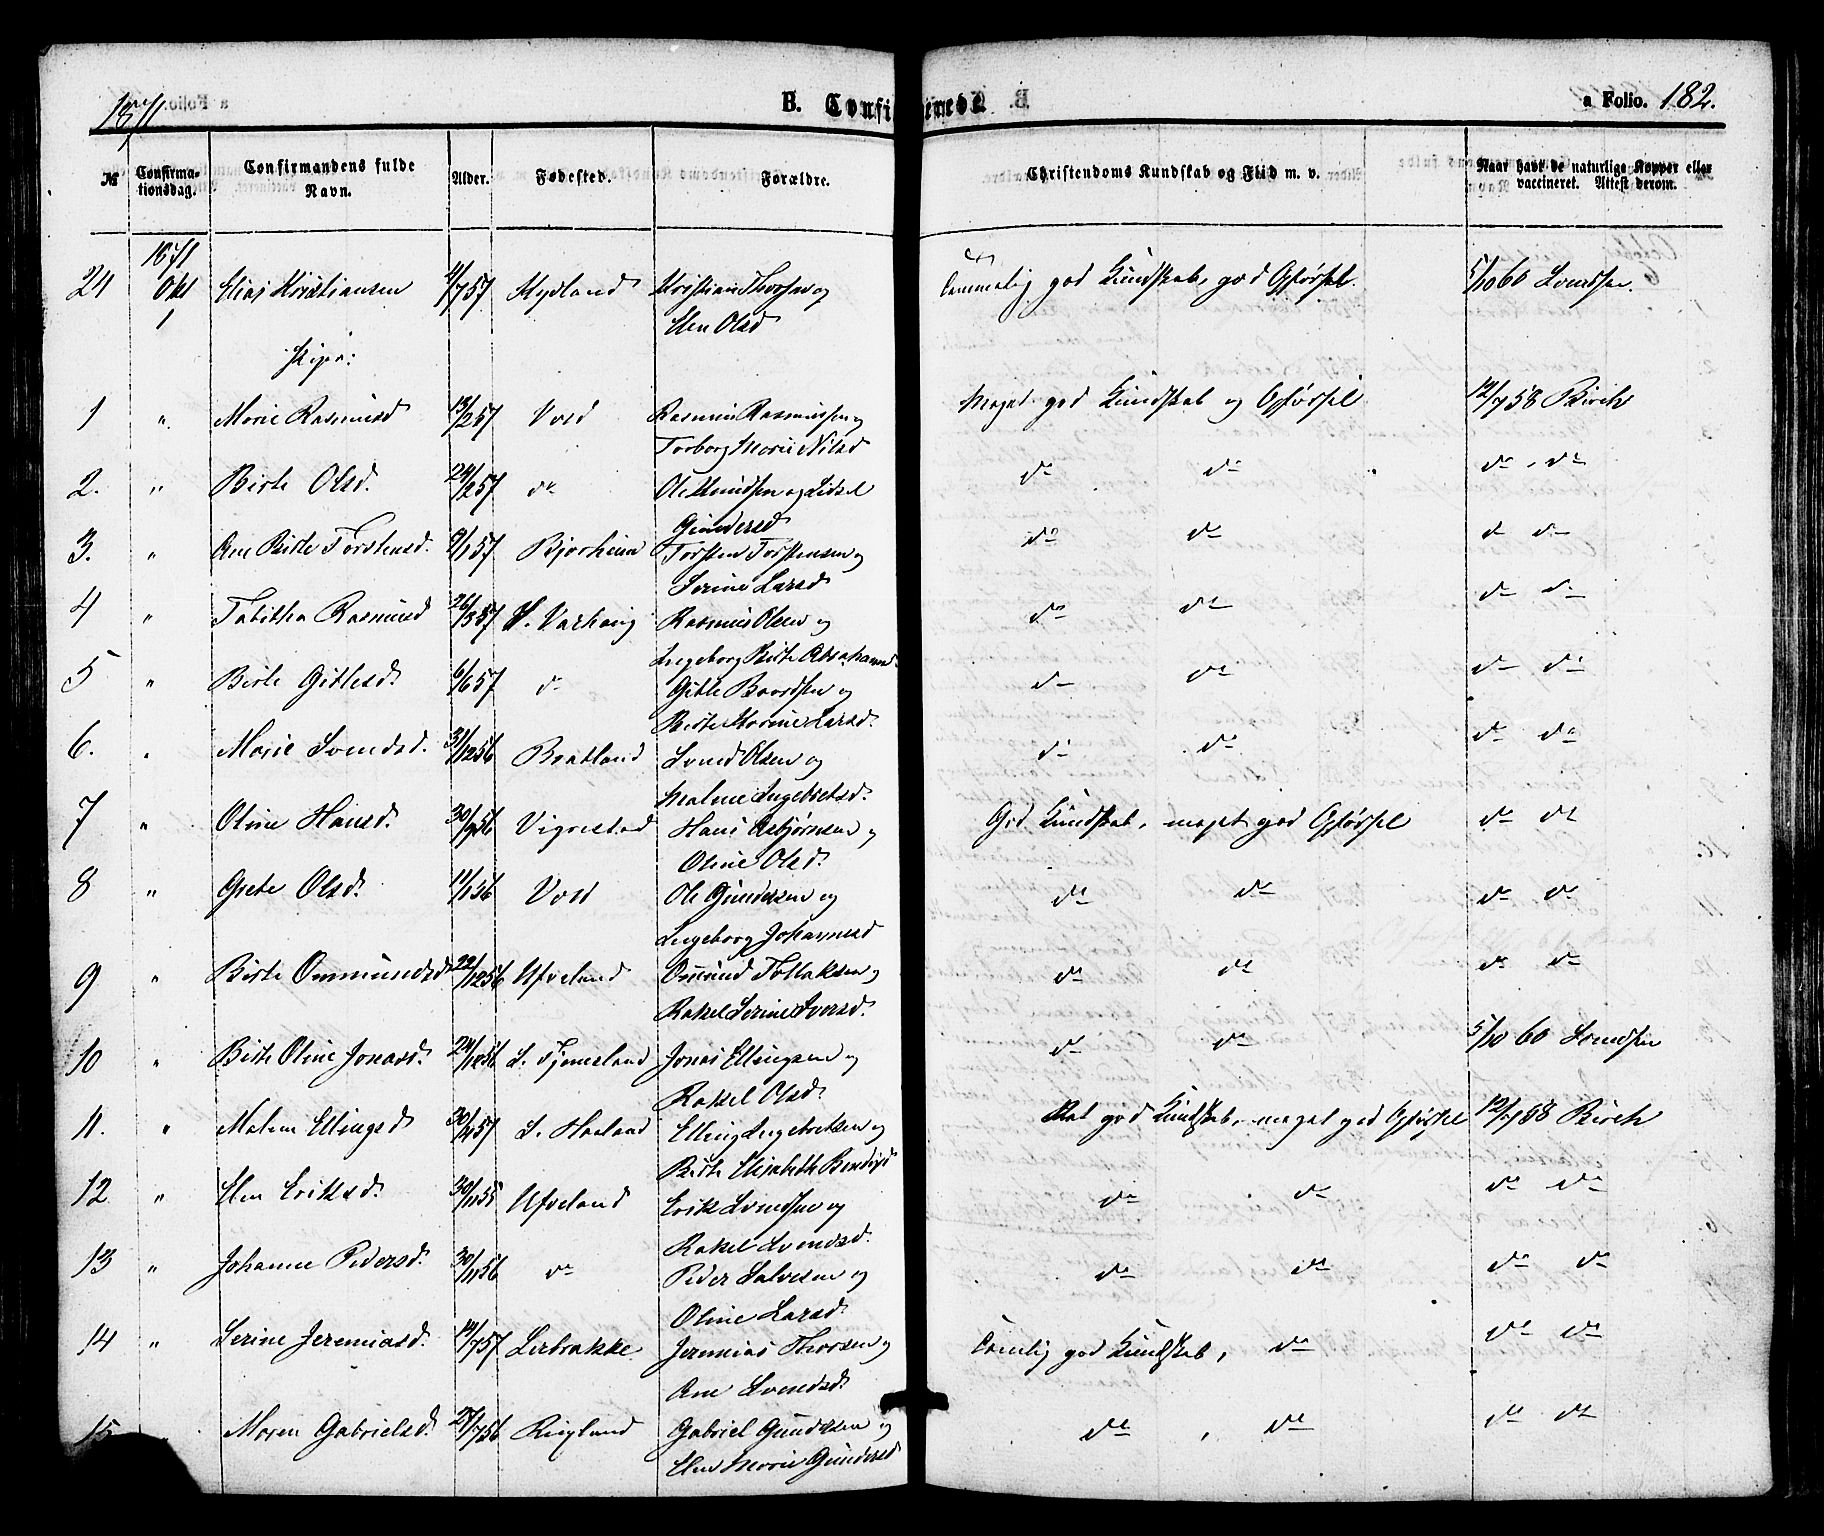 1871
B. Confirmerede.
a Folio. 182.
№ Confirmationsdag. Confirmandens fulde Navn. Alder. Fødested. Forældre. Christendoms Kundskab og Flid m. v. Naar havt de naturlige Kopper eller vaccineret. Attest derom.
1871
24 Okt 1 Elias Kristiansen 4/7 57 Kydland Kristian Thorsen og Temmelig god Kundskab, god Opførsel. 5/10 60 Svendsen.
Elen Olsd
Piger:
1 " Marie Rasmusd 13/2 57 Vold Rasmus Rasmussen og Meget god Kundskab og Opførsel 12/7 58 Birch
Torborg Marie Nilsd
2. " Birte Olsd. 24/2 57 do Ole Knudsen og Sidsel do do do, do
Gundersd
3. " Ane Birte Torstensd. 9/1 57 Bjorheim Torsten Torstensen og do do do do
Serine Larsd
4 " Tabitha Rasmusd 26/3 57 N. Varhoug Rasmus Olsen og do do do do
Ingeborg Birte Abrahamsd.
5 " Birte Gitlesd. 6/6 57 do Gitle Baardsen og do do do do
Birte Karine Larsd.
6. " Marie Svendsd. 31/12 56 Bratland Svend Olsen og do do do do
Malene Ingebretsd.
7 " Oline Hansd. 30/9 56 Vigrestad Hans Asbjørnsen og God Kundskab, meget god Opførsel do do
Oline Olsd.
8 " Grete Olsd. 11/1 56 Vold Ole Gundersen og do do do do
Ingeborg Johannesd
9 " Birte Ommundsd 22/12 56 Ufveland Omund Tollaksen og do do do do
Rakel Serine Iversd.
10 " Birte Oline Jonasd. 24/12 56 S. Tjemsland Jonas Ellingsen og do do 5/10 60 Svendsen
Rakel Olsd.
11. " Malene Ellingsd 30/4 57 S. Haaland Elling Ingebretsen og Ret god Kundskab, meget god Opførsel 12/7 58 Birch
Birte Elisabeth Bendixd
12 " Elen Eriksd. 30/11 55 Ufveland Erik Svendsen og do do do do
Rakel Svendsd.
13 " Johanne Pedersd. 30/11 56 do Peder Salvesen og do do do do
Oline Larsd.
14 " Serine Jeremiasd. 19/7 57 Lerbrække Jeremias Thorsen og Temlig god Kundskab, do do do
Ane Svendsd.
15 Maren Gabrielsd. 27/7 56 Ringland Gabriel Gundersen og do, do do do
Elen Marie Gundersd